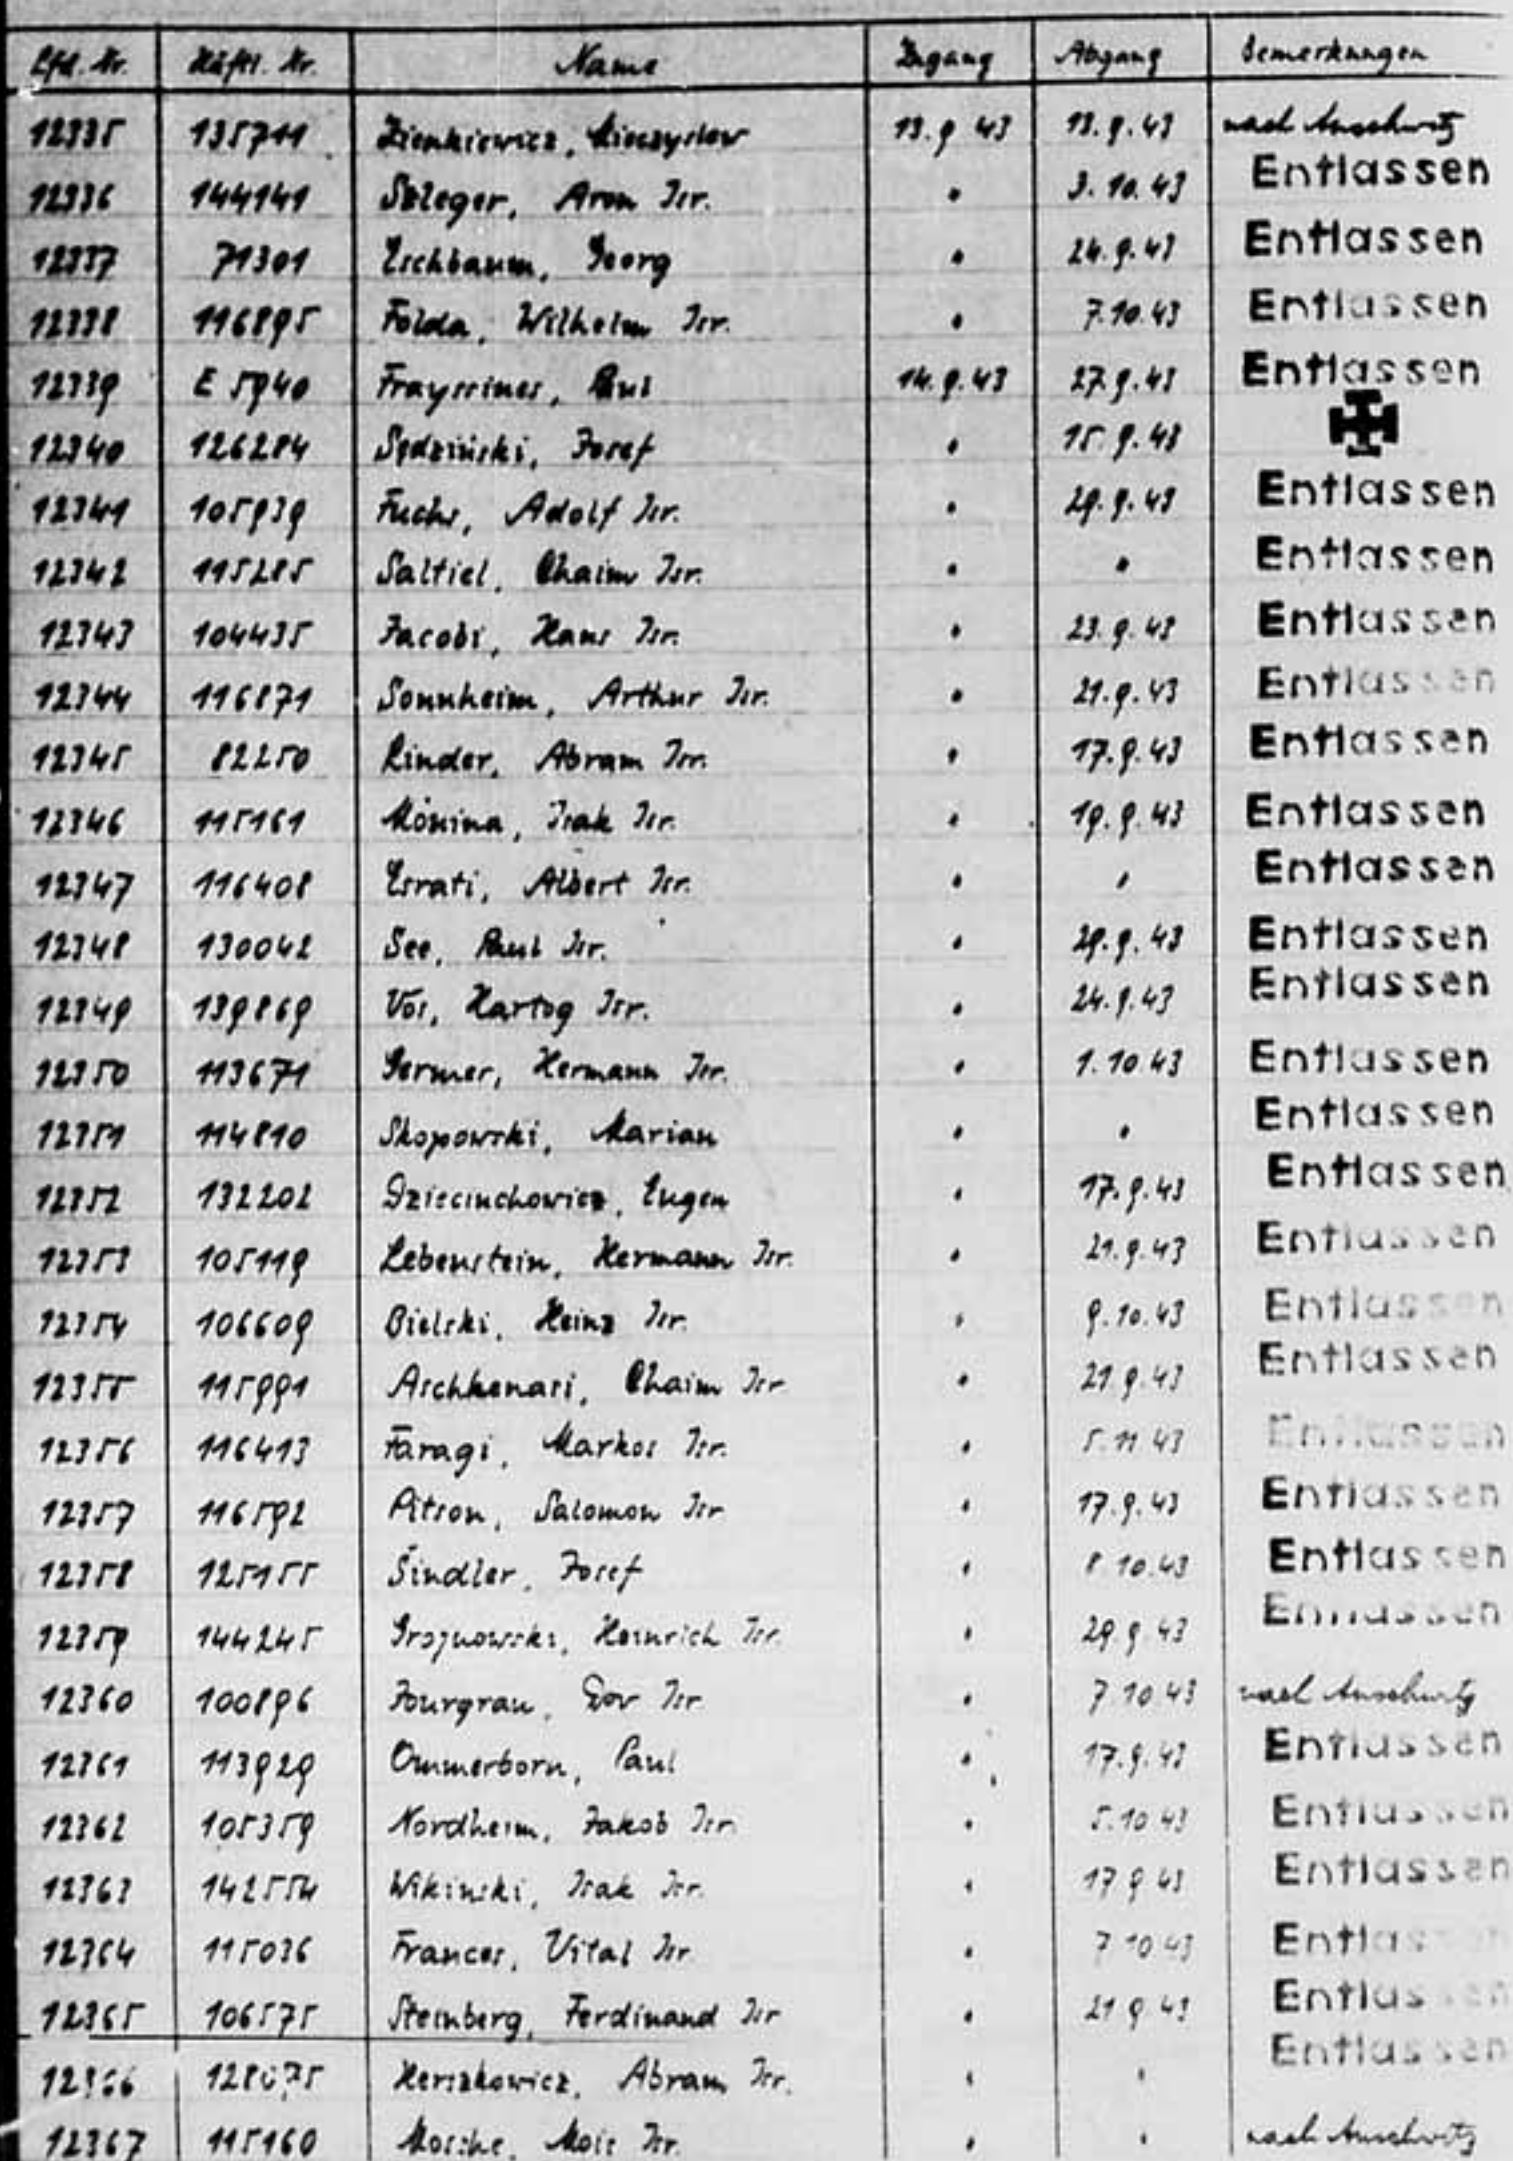 Lfd. Nr. Häftl. Nr. Name Zugang Abgang Bemerkungen
12335 135711 Zienkiewicz, Mieczyslaw 13.9 43 13.9.43 nach Auschwitz
12336 144141 Szleger, Aron Isr. " 3.10.43 Entlassen
12337 71301 Eschbaum, Georg " 24.9.43 Entlassen
12338 116895 Folda, Wilhelm Isr. " 7.10.43 Entlassen
12339 E 5940 Fraysrines, Paul 14.9.43 27.9.43 Entlassen
12340 126284 Sędziński, Josef " 15.9.43
12341 105939 Fuchs, Adolf Isr. " 29.9.43 Entlassen
12342 115285 Saltiel, Chaim Isr. " " Entlassen
12343 104435 Jacobi, Hans Isr. " 23.9.43 Entlassen
12344 116871 Sonnheim, Arthur Isr. " 21.9.43 Entlassen
12345 82250 Rinder, Abram Isr. " 17.9.43 Entlassen
12346 115161 Monina, Isak Isr. " 19.9.43 Entlassen
12347 116408 Esrati, Albert Isr. " " Entlassen
12348 130042 See, Paul Isr. " 29.9.43 Entlassen
12349 139869 Vos, Hartog Isr. " 24.9.43 Entlassen
12350 113671 Germer, Hermann Isr. " 1.10 43 Entlassen
12351 114810 Skopowski, Marian " " Entlassen
12352 132202 Dziecinchowicz, Eugen " 17.9.43 Entlassen
12353 105119 Lebenstein, Hermann Isr. " 21.9.43 Entlassen
12354 106609 Bielski, Heinz Isr. " 9.10.43 Entlassen
12355 115991 Aschkenasi, Chaim Isr " 21.9.43 Entlassen
12356 116413 Faragi, Markos Isr. " 5.11 43 Entlassen
12357 116592 Pitson, Salomon Isr " 17.9.43 Entlassen
12358 125155 Šindler, Josef " 8 10.43 Entlassen
12359 144245 Grojnowski, Heinrich Isr. " 29 9 43 Entlassen
12360 100896 Jourgrau, Dov Isr " 7 10 43 nach Auschwitz
12361 113929 Ommerborn, Paul " 17.9.43 Entlassen
12362 105359 Nordheim, Jakob Isr. " 5.10 43 Entlassen
12363 142554 Wikinski, Isak Isr. " 17 9 43 Entlassen
12364 115036 Frances, Vital Isr " 7 10 43 Entlassen
12365 106575 Steinberg, Ferdinand Isr " 21 9 43 Entlassen
12366 128075 Herszkowicz, Abram Isr. " " Entlassen
12367 115160 Mosche, Mois Isr. " " nach Auschwitz